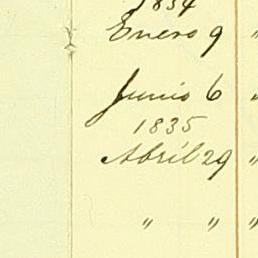 1834
Enero 9 "
Junio 6 "
1835
Abril 29 "
" " "